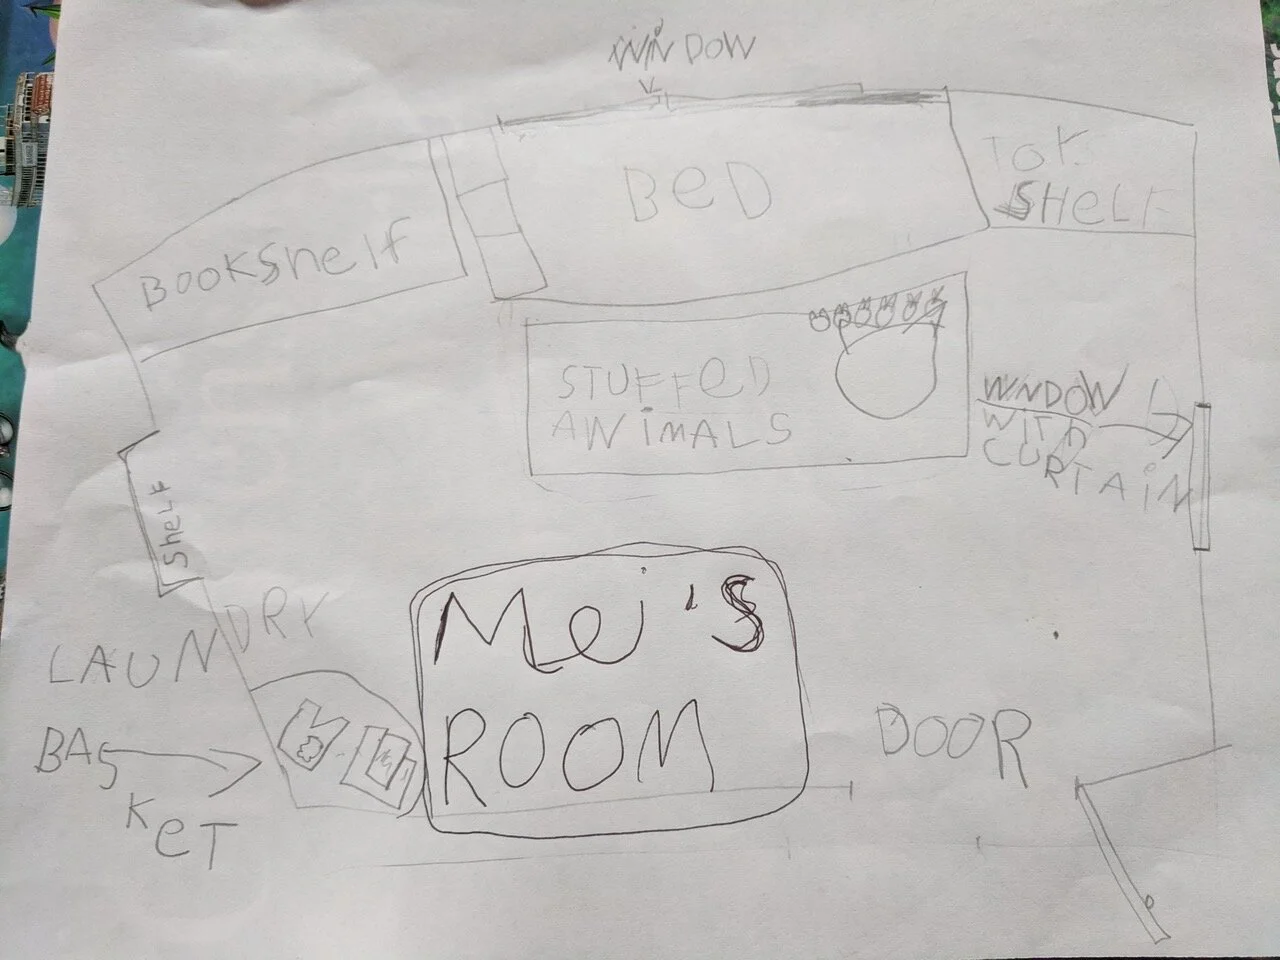 WINDOW
BeD
TOY
SHeLF
BOOKSHelf
STUFFeD
ANiMALS
WNDOW
WITH
CURTAiN
SHeLF
LAUNDRY
BAS
KeT
Mei's
ROOM
DOOR